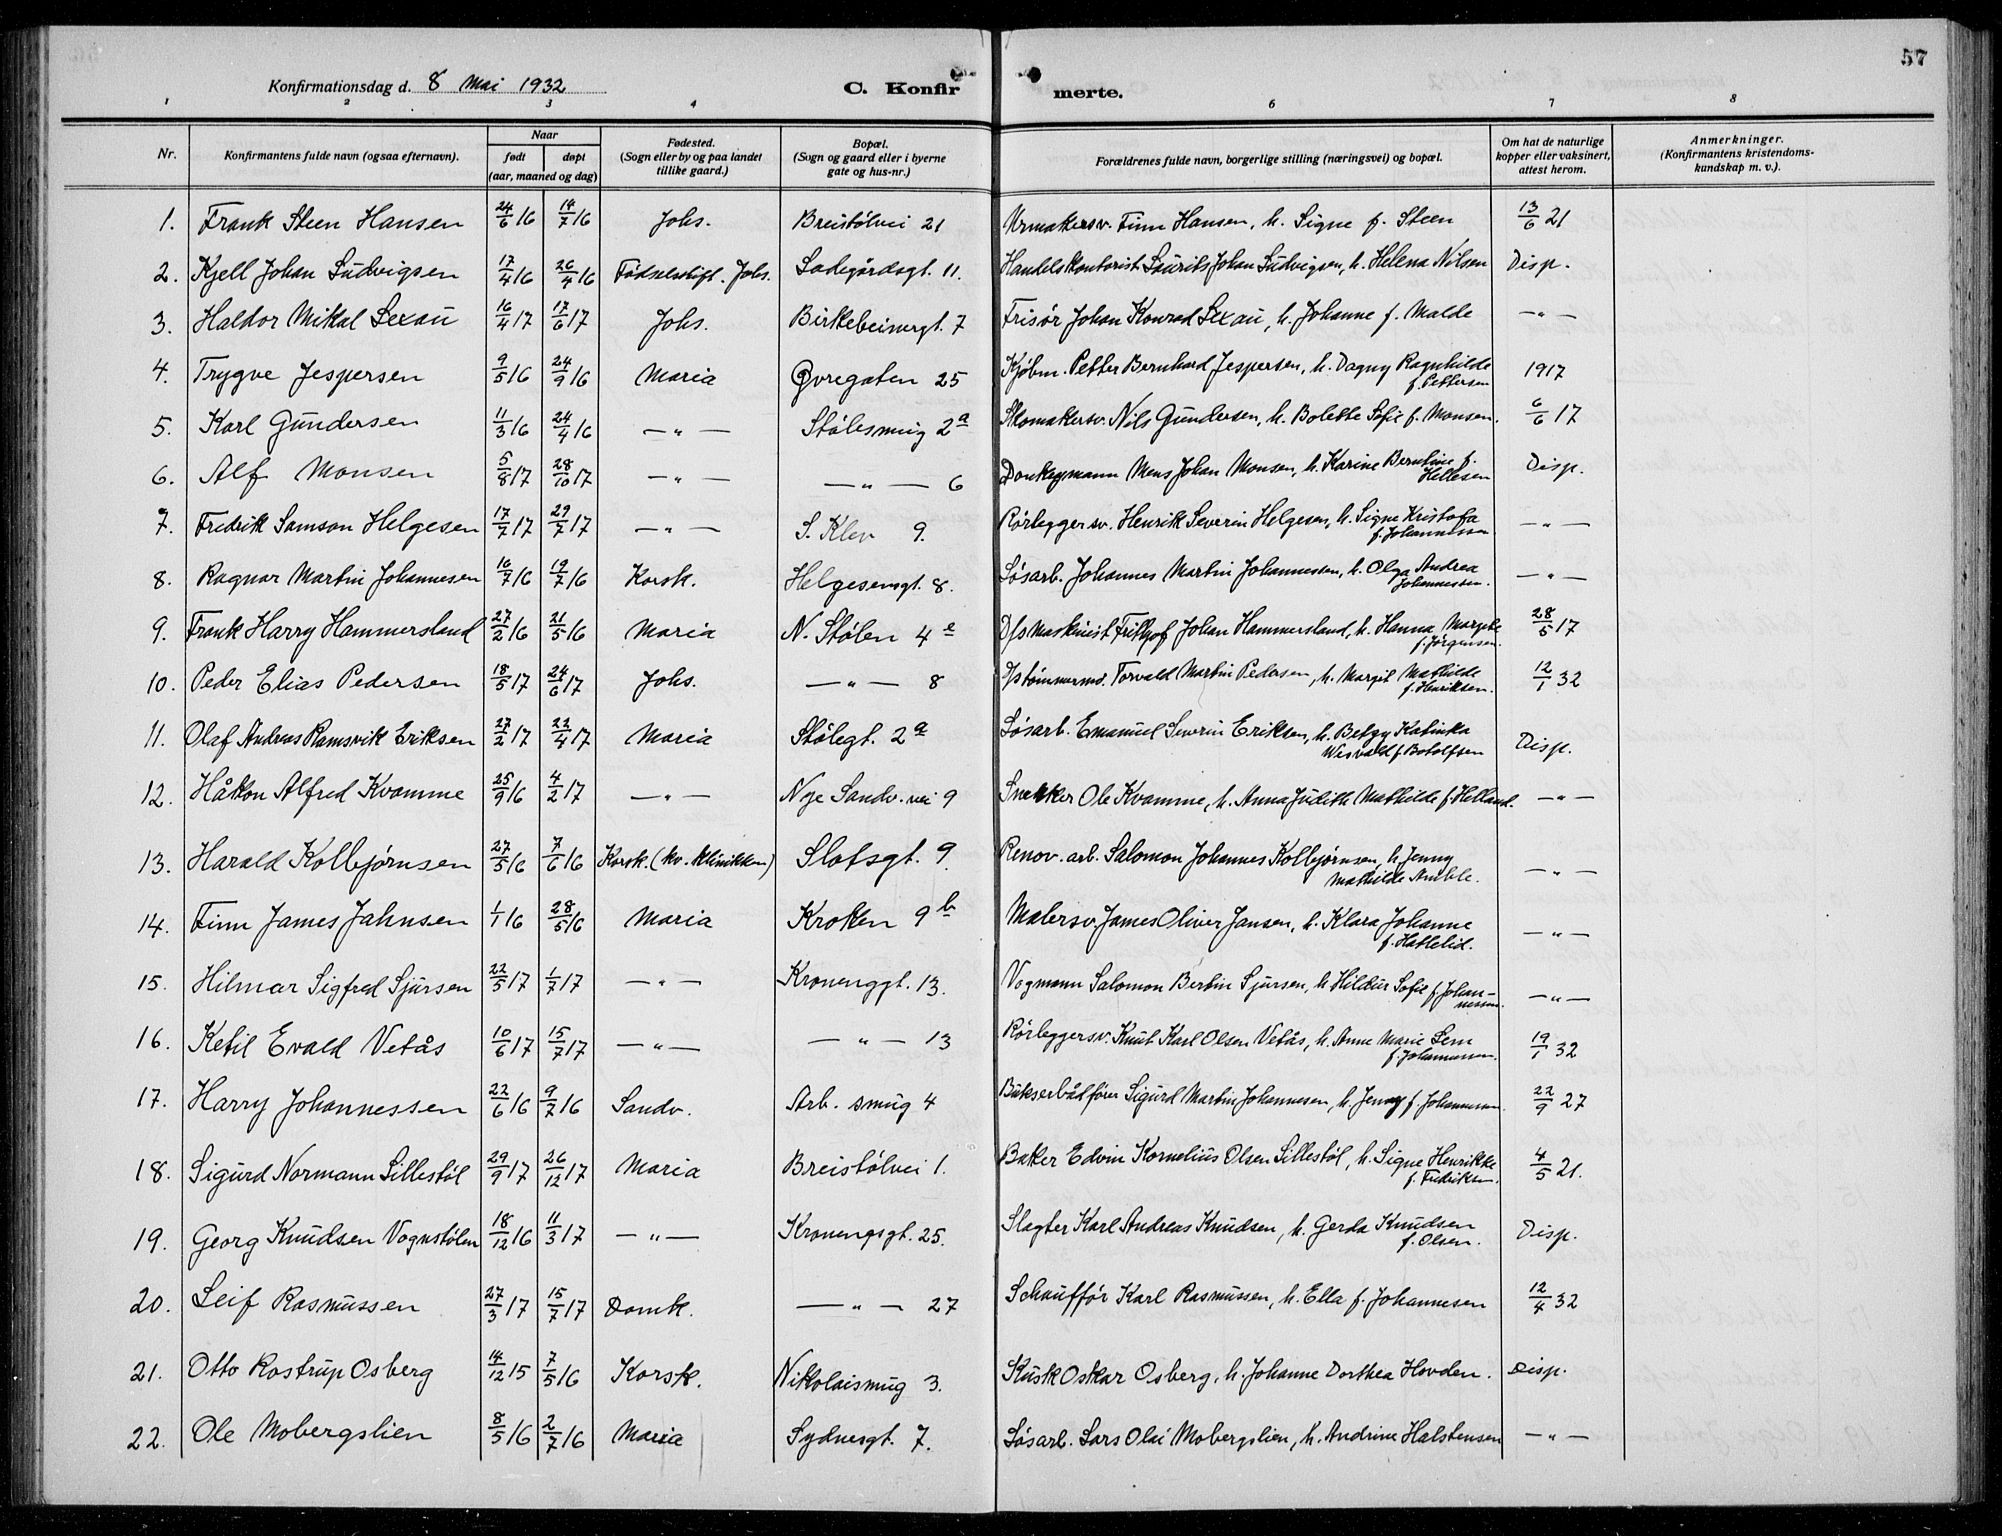 57
Konfirmationsdag d. 8 Mai 1932
C. Konfirmerte.
1 2 3 4 5 6 7 8
Nr.
Konfirmantens fulde navn (ogsaa efternavn).
Naar
født
døpt
(aar, maaned og dag)
Fødested.
(Sogn eller by og paa landet
tillike gaard.)
Bopæl.
(Sogn og gaard eller i byerne
gate og hus-nr.)
Forældrenes fulde navn, borgerlige stilling (næringsvei) og bopæl.
Om hat de naturlige
kopper eller vaksinert,
attest herom.
Anmerkninger.
(Konfirmantens kristendoms-
kundskap m. v.).
1. Frank Steen Hansen 24/6 16 14/7 16 Johs. Breistølvei 21 Urmakersv. Finn Hansen, h. Signe f. Steen 13/6 21
2. Kjell Johan Ludvigsen 17/4 16 26/4 16 Fødselsstift. Johs. Ladegårdsgt. 11. Handelskontorist Laurits Johan Ludvigsen, h. Helena Nilsen Disp.
3. Haldor Mikal Lexau 16/4 17 17/6 17 Johs. Birkebeinergt. 7 Frisør Johan Konrad Lexau, h. Johanne f. Malde — " —
4. Trygve Jespersen 9/5 16 24/9 16 Maria Øvregaten 25 Kjøbm. Petter Bernhard Jespersen, h. Dagny Ragnhilde
f. Pettersen 1917
5. Karl Gundersen 11/3 16 24/4 16 — " — Stølesmug 2a Skomakersv. Nils Gundersen, h. Bolette Sofie f. Monsen. 6/6 17
6. Alf Monsen 5/8 17 28/10 17 — " — — " — 6 Donkeymann Mons Johan Monsen, h. Karine Berntine f.
Hellesen Disp.
7. Fredrik Samson Helgesen 17/7 17 29/7 17 — " — S. Klev 9. Rørlegger sv. Henrik Severin Helgesen, h. Signe Kristofa
f. Johannessen — " —
8. Ragnar Martin Johannesen 16/7 16 19/7 16 Korsk. Helgesensgt. 8. Løsarb. Johannes Martin Johannessen, h. Olga Andrea
Johannessen. — " —
9. Frank Harry Hammersland 27/2 16 21/5 16 Maria N. Stølen 4e D/s Maskinist Frithjof Johan Hammersland, h. Hanna Margrete
f. Jørgensen. 28/5 17
10. Peder Elias Pedersen 18/5 17 24/6 17 Johs. — " — 8 Torvald Martin Pedersen, h. Margit Mathilde
f. Henriksen. 12/1 32
11. Olaf Andreas Ramsvik Eriksen 27/2 17 22/4 17 Maria Stølegt. 2a Løsarb. Emanuel Severin Eriksen, h. Betzy Katinka
f. Botolfsen Disp.
12. Håkon Alfred Kvamme 25/9 16 4/2 17 — " — Nye Sandv. vei 9 Snekker Ole Kvamme, h. Anna Judith Mathilde f. Helland. — " —
13. Harald Kolbjørnsen 27/5 16 7/6 16 Korsk. (kv. klinikken) Slotsgt. 9. Renov. arb. Salomon Johannes Kolbjørnsen, h. Jenny
Mathilde Amble. — " —
14. Finn James Jahnsen 1/1 16 28/5 16 Maria Kroken 9b Malersv. James Oliver Jansen, h. Klara Johanne
f. Hatlelid. — " —
15. Hilmar Sigfred Sjursen 22/5 17 1/7 17 — " — Kronenggt. 13. Vogmann Salomon Bertin Sjursen, h. Hildur Sofie f. Johan-
nessen. — " —
16. Ketil Evald Vetås 10/6 17 15/7 17 — " — — " — 13 Rørleggersv. Knut Karl Olsen Vetås, h. Anne Marie Lem
f. Johannessen. 19/1 32
17. Harry Johannessen 22/6 16 9/7 16 Sandv. Arb. smug 4 Bukserbåtfører Sigurd Martin Johannesen, h. Jenny f. Johannessen. 22/9 27
18. Sigurd Normann Lillestøl 29/9 17 26/12 17 Maria Breistølvei 1. Baker Edvin Kornelius Olsen Lillestøl, h. Signe Henrikke
f. Fredriksen. 4/5 21.
19. Georg Knudsen Vognstølen 18/12 16 11/3 17 — " — Kronengsgt. 25. Slagter Karl Andreas Knudsen, h. Gerda Knudsen
f. Olsen. Disp.
20. Leif Rasmussen 27/3 17 15/7 17 Domk. — " — 27 Schauffør Karl Rasmussen, h. Ella f. Johannesen 12/4 32
21. Otto Rostrup Osberg 14/12 15 7/5 16 Korsk. Nikolaismug 3. Kusk Oskar Osberg, h. Johanne Dorthea Hovden. Disp.
22. Ole Mobergslien 8/5 16 2/7 16 Maria Sydnesgt. 7. Løsarb. Lars Olai Mobergslien, h. Andrine Halstensen — " —